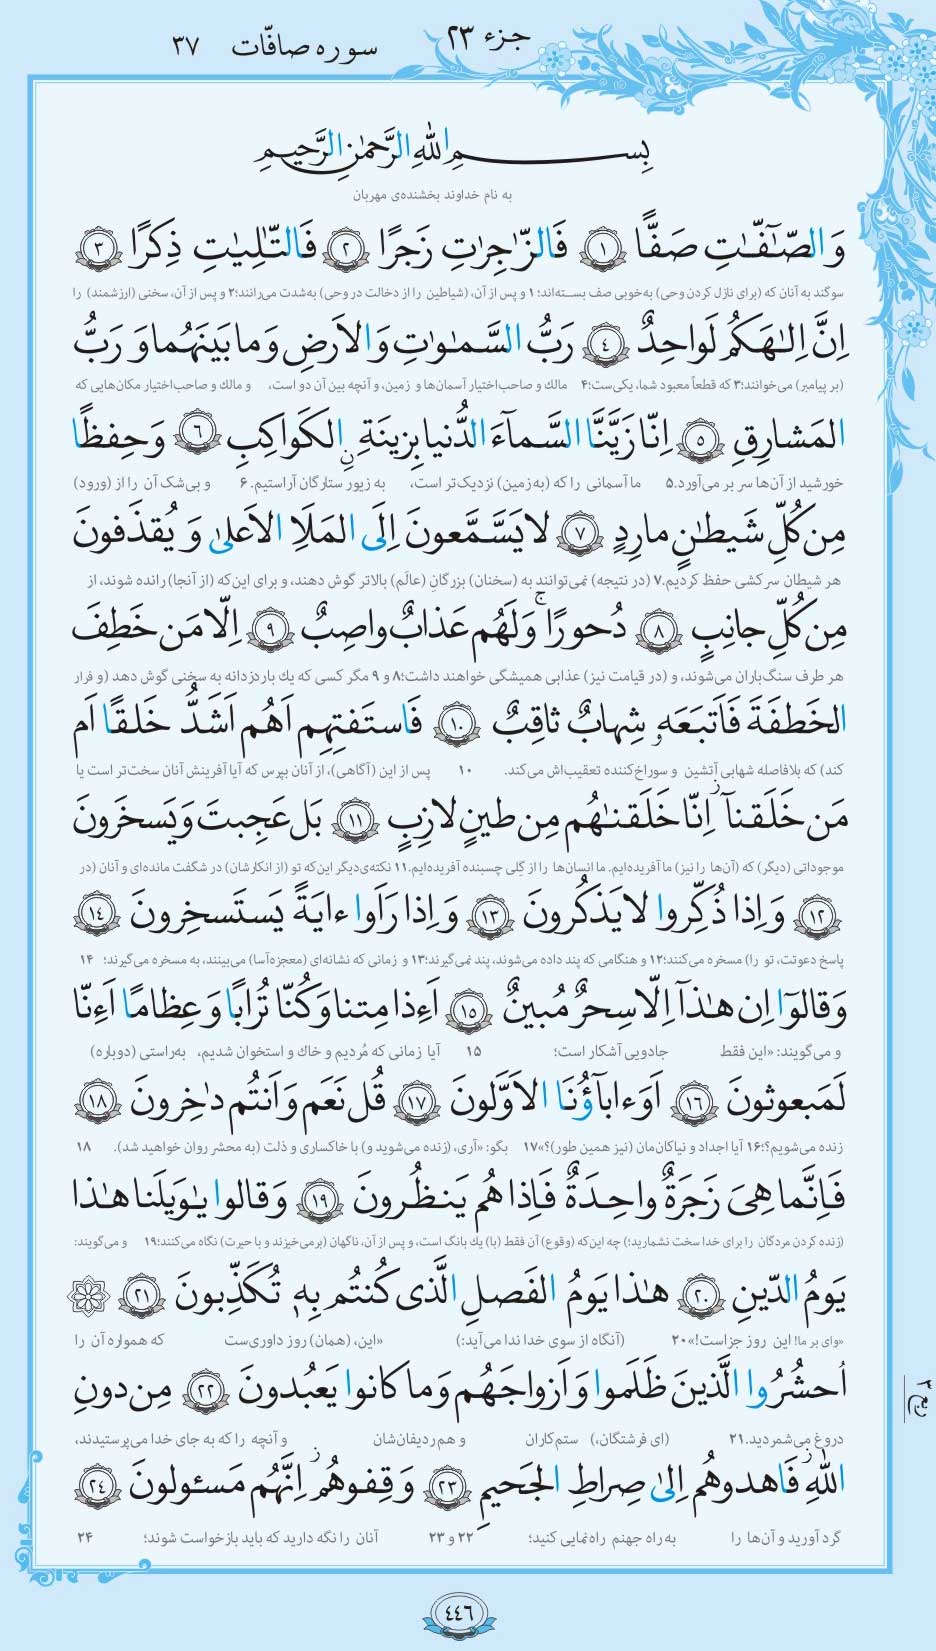 جزء ۲۳
سوره صافّات ۳۷
بِسمِ اللّٰهِ الرَّحمٰنِ الرَّحیمِ
به نام خداوند بخشنده‌ی مهربان
وَالصّٰٓفّٰتِ صَفًّا ﴿١﴾ فَالزّٰجِرٰتِ زَجرًا ﴿٢﴾ فَالتّٰلِیٰتِ ذِکرًا ﴿٣﴾
سوگند به آنان که (برای نازل کردن وحی) به‌خوبی صف بسته‌اند؛ ۱ و پس از آن، (شیاطین را از دخالت در وحی) به‌شدت می‌رانند؛ ۲ و پس از آن، سخنی (ارزشمند) را
اِنَّ اِلٰهَکُم لَواحِدٌ ﴿٤﴾ رَبُّ السَّمٰوٰتِ وَالاَرضِ وَما بَینَهُما وَ رَبُّ
(بر پیامبر) می‌خوانند؛ ۳ که قطعاً معبود شما، یکی‌ست؛ ۴ مالك و صاحب‌اختیار آسمان‌ها و زمین، و آنچه بین آن دو است، و مالك و صاحب‌اختیار مکان‌هایی که
المَشارِقِ ﴿٥﴾ اِنّا زَیَّنَّا السَّمآءَ الدُّنیا بِزینَةٍ نِ الکَواکِبِ ﴿٦﴾ وَحِفظًا
خورشید از آن‌ها سر بر می‌آورد. ۵ ما آسمانی را که (به‌زمین) نزدیک‌تر است، به زیور ستارگان آراستیم. ۶ و بی‌شک آن را از (ورود)
مِن کُلِّ شَیطٰنٍ مارِدٍ ﴿٧﴾ لا یَسَّمَّعونَ اِلَی المَلَاِ الاَعلیٰ وَ یُقذَفونَ
هر شیطان سرکشی حفظ کردیم. ۷ (در نتیجه) نمی‌توانند به (سخنان) بزرگانِ (عالَم) بالاتر گوش دهند، و برای این‌که (از آنجا) رانده شوند، از
مِن کُلِّ جانِبٍ ﴿٨﴾ دُحورًا ۚ وَلَهُم عَذابٌ واصِبٌ ﴿٩﴾ اِلّا مَن خَطِفَ
هر طرف سنگ‌باران می‌شوند، و (در قیامت نیز) عذابی همیشگی خواهند داشت؛ ۸ و ۹ مگر کسی که یك بار دزدانه به سخنی گوش دهد (و فرار
الخَطفَةَ فَاَتبَعَهٗ شِهابٌ ثاقِبٌ ﴿١٠﴾ فَاستَفتِهِم اَهُم اَشَدُّ خَلقًا اَم
کند) که بلافاصله شهابی آتشین و سوراخ‌کننده تعقیب‌اش می‌کند. ۱۰ پس از این (آگاهی)، از آنان بپرس که آیا آفرینش آنان سخت‌تر است یا
مَن خَلَقنآ ز اِنّا خَلَقنٰهُم مِن طینٍ لازِبٍ ﴿١١﴾ بَل عَجِبتَ وَیَسخَرونَ
موجوداتی (دیگر) که (آن‌ها را نیز) ما آفریده‌ایم. ما انسان‌ها را از گِلی چسبنده آفریده‌ایم. ۱۱ نکته‌ی‌دیگر این‌که تو (از انکارشان) در شگفت مانده‌ای و آنان (در
﴿١٢﴾ وَاِذا ذُکِّروا لا یَذکُرونَ ﴿١٣﴾ وَاِذا رَاَوا ءایَةً یَستَسخِرونَ ﴿١٤﴾
پاسخ دعوتت، تو را) مسخره می‌کنند؛ ۱۲ و هنگامی که پند داده می‌شوند، پند نمی‌گیرند؛ ۱۳ و زمانی که نشانه‌ای (معجزه‌آسا) می‌بینند، به مسخره می‌گیرند؛ ۱۴
وَقالوٓا اِن هٰذآ اِلّا سِحرٌ مُبینٌ ﴿١٥﴾ اَءِذا مِتنا وَکُنّا تُرابًا وَعِظامًا اَءِنّا
و می‌گویند: «این فقط جادویی آشکار است؛ ۱۵ آیا زمانی که مُردیم و خاك و استخوان شدیم، به‌راستی (دوباره)
لَمَبعوثونَ ﴿١٦﴾ اَوَءابآؤُنَا الاَوَّلونَ ﴿١٧﴾ قُل نَعَم وَاَنتُم دٰخِرونَ ﴿١٨﴾
زنده می‌شویم؟! ۱۶ آیا اجداد و نیاکان‌مان (نیز همین طور)؟» ۱۷ بگو: «آری، (زنده می‌شوید و) با خاکساری و ذلت (به محشر روان خواهید شد). ۱۸
فَاِنَّما هِیَ زَجرَةٌ واحِدَةٌ فَاِذا هُم یَنظُرونَ ﴿١٩﴾ وَقالوا یٰوَیلَنا هٰذا
(زنده کردن مردگان را برای خدا سخت نشمارید؛) چه این‌که (وقوع) آن فقط (با) یك بانگ است، و پس از آن، ناگهان (برمی‌خیزند و با حیرت) نگاه می‌کنند؛ ۱۹ و می‌گویند:
یَومُ الدّینِ ﴿٢٠﴾ هٰذا یَومُ الفَصلِ الَّذی کُنتُم بِهٖ تُکَذِّبونَ ﴿٢١﴾
«وای بر ما! این روز جزاست!» ۲۰ (آنگاه از سوی خدا ندا می‌آید:) «این، (همان) روز داوری‌ست که همواره آن را
اُحشُرُوا الَّذینَ ظَلَموا وَاَزواجَهُم وَما کانوا یَعبُدونَ ﴿٢٢﴾ مِن دونِ
دروغ می‌شمردید. ۲۱ (ای فرشتگان،) ستم‌کاران و هم‌ردیفان‌شان و آنچه را که به جای خدا می‌پرستیدند،
اللّٰهِ ز فَاهدوهُم اِلیٰ صِراطِ الجَحیمِ ﴿٢٣﴾ وَقِفوهُم ز اِنَّهُم مَسئولونَ ﴿٢٤﴾
گرد آورید و آن‌ها را به راه جهنم راه‌نمایی کنید؛ ۲۲ و ۲۳ آنان را نگه دارید که باید بازخواست شوند؛ ۲۴
ربع ۲
٤٤٦